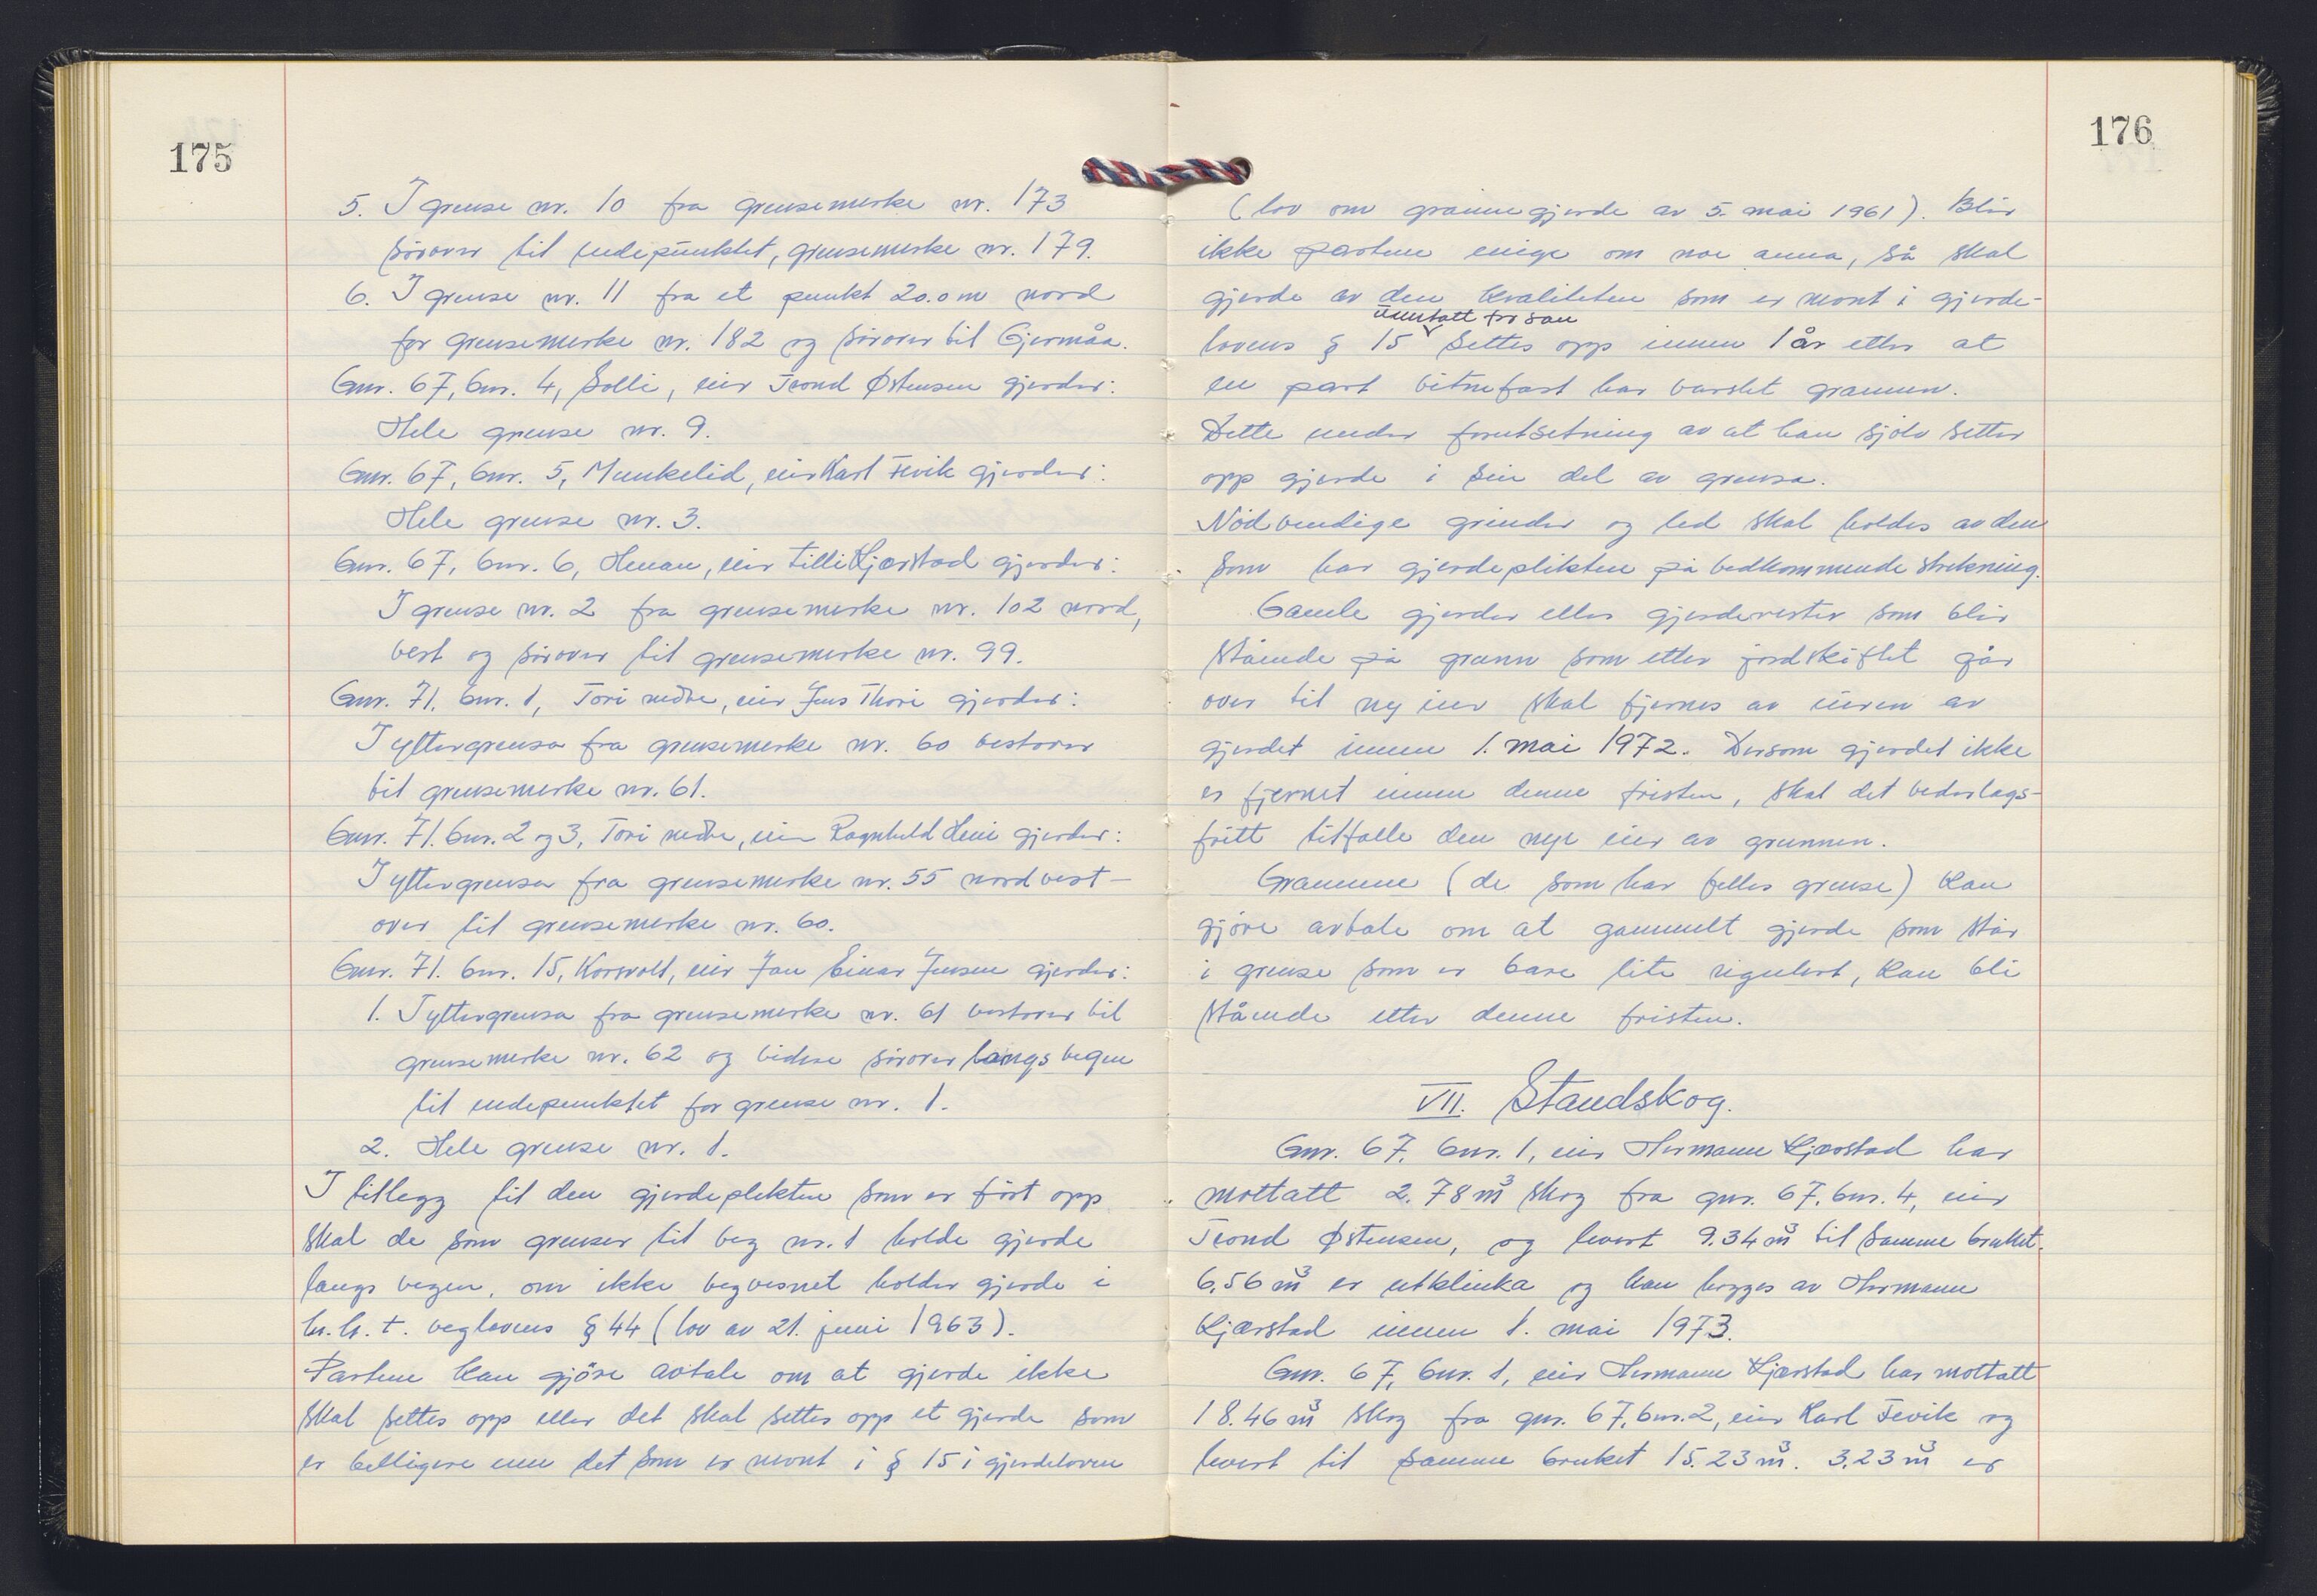 175
5. I grense nr. 10 fra grensemerke nr. 173
sörover til endepunktet, grensemerke nr. 179.
6. I grense nr. 11 fra et punkt 20.0 m nord
for grensemerke nr. 182 og sörover til Gjermåa.
Gnr. 67, bnr. 4, Solli, eier Trond Østensen gjerder:
Hele grense nr. 9.
Gnr. 67, bnr. 5, Munkelid, eier Karl Tevik gjerder:
Hele grense nr. 3.
Gnr. 67, bnr. 6, Henan, eier Tilli Kjærstad gjerder:
I grense nr. 2 fra grensemerke nr. 102 nord,
vest og sörover til grensemerke nr. 99.
Gnr. 71. bnr. 1, Tori nedre, eier Jens Thori gjerder:
I yttergrensa fra grensemerke nr. 60 vestover
til grensemerke nr. 61.
Gnr. 71. bnr. 2 og 3, Tori nedre, eier Ragnhild Heni gjerder:
I yttergrensa fra grensemerke nr. 55 nordvest-
over til grensemerke nr. 60.
Gnr. 71. bnr. 15, Korsvolt, eier Jan Einar Jensen gjerder:
1. I yttergrensa fra grensemerke nr. 61 vestover til
grensemerke nr. 62 og videre sörover langs vegen
til endepunktet for grense nr. 1.
2. Hele grense nr. 1.
I tillegg til den gjerdeplikten som er fört opp
skal de som grenser til veg nr. 1 holde gjerde
langs vegen, om ikke vegvesnet holder gjerde i
h.h.t. veglovens § 44 (lov av 21. juni 1963).
Partene kan gjöre avtale om at gjerde ikke
skal settes opp eller det skal settes opp et gjerde som
er billigere enn det som er nevnt i § 15 i gjerdeloven
176
(lov om grannegjerde av 5. mai 1961). Blir
ikke partene enige om noe anna, så skal
gjerde av den kvaliteten som er nevnt i gjerde-
unntatt for sau
lovens § 15 settes opp innen 1 år etter at
en part vitnefast har varslet grannen.
Dette under forutsetning av at han sjölv setter
opp gjerde i sin del av grensa.
Nödvendige grinder og led skal holdes av den
som har gjerdeplikten på vedkommende strekning.
Gamle gjerder eller gjerderester som blir
stående på grunn som etter jordskiftet går
over til ny eier skal fjernes av eieren av
gjerdet innen 1. mai 1972. Dersom gjerdet ikke
er fjernet innen denne fristen, skal det vederlags-
fritt tilfalle den nye eier av grunnen.
Grannene (de som har felles grense) kan
gjöre avtale om at gammelt gjerde som står
i grense som er bare lite regulert, kan bli
stående etter denne fristen.
VII. Standskog.
Gnr. 67. bnr. 1, eier Hermann Kjærstad har
mottatt 2.78 m³ skog fra gnr. 67. bnr. 4, eier
Trond Østensen, og levert 9.34 m³ til samme bruket.
6,56 m³ er utblinka og kan hogges av Hermann
Kjærstad innen 1. mai 1973.
Gnr. 67, bnr. 1, eier Hermann Kjærstad har mottatt
18.46 m³ skog fra gnr. 67, bnr. 2, eier Karl Tevik og
levert til samme bruket 15.23 m³. 3.23 m³ er